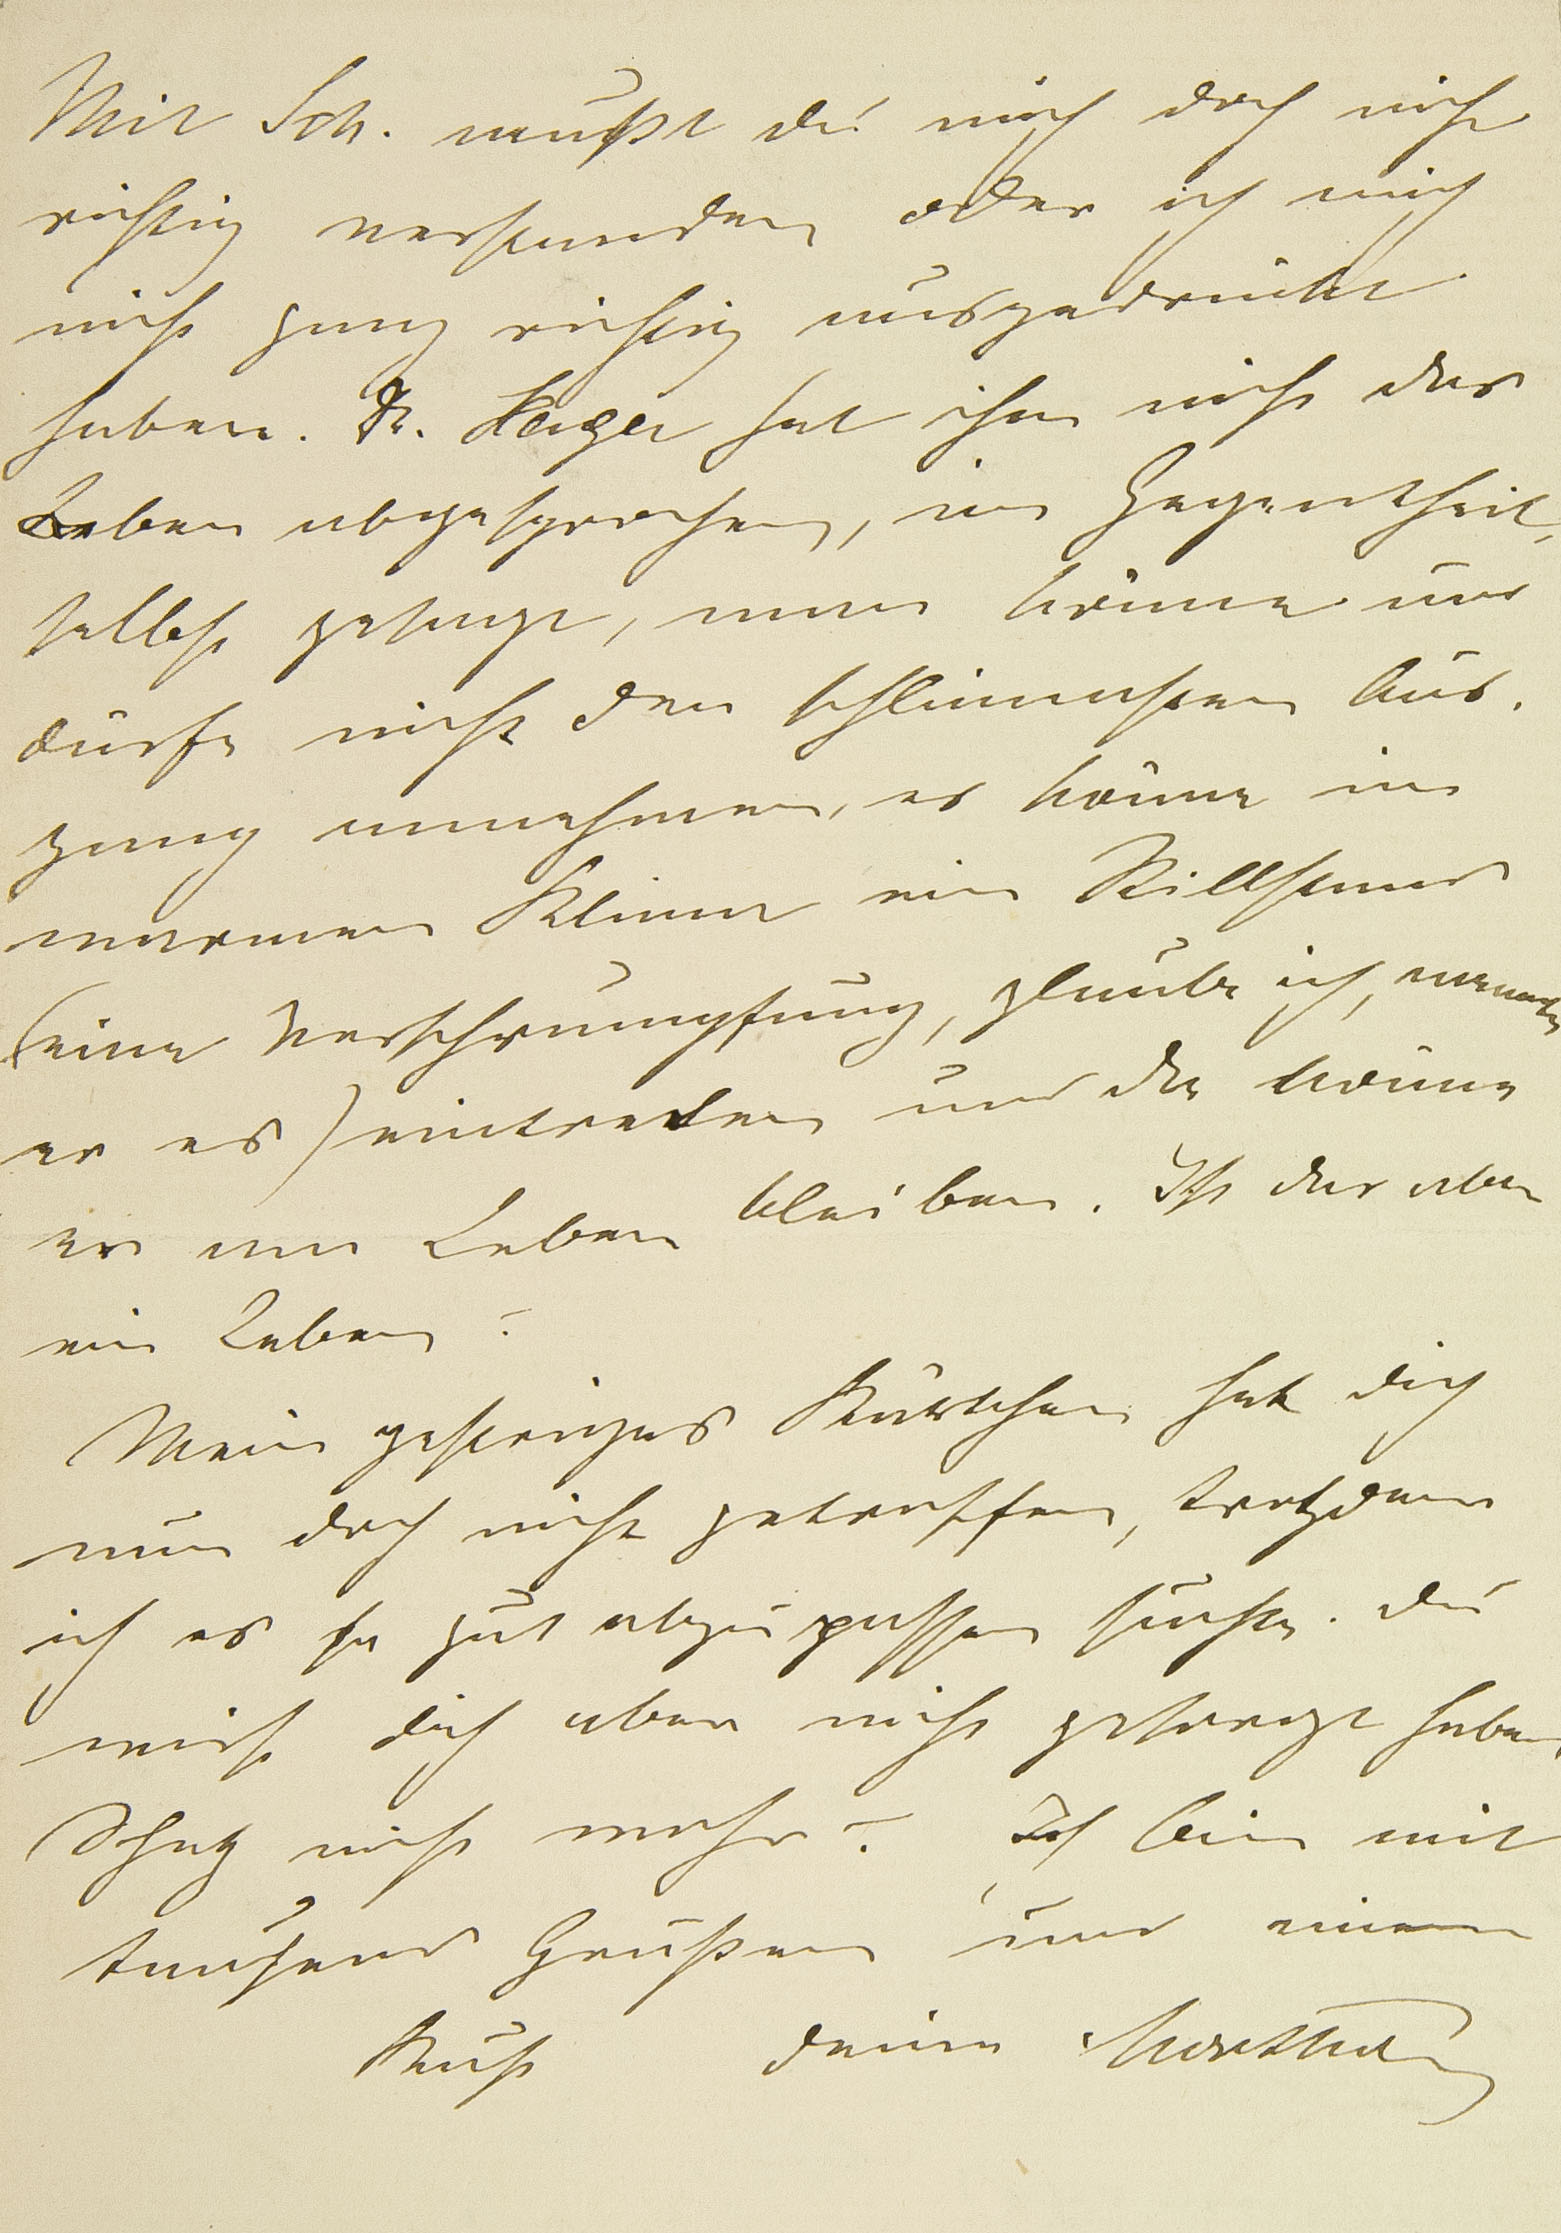 Mit Sch. mußt du mich doch nicht
richtig verstanden oder ich mich
nicht ganz richtig ausgedrückt
haben. Dr. Hager hat ihm nicht das
Leben abgesprochen, im Gegentheil,
selbst gesagt, man könne und
dürfe nicht den schlimmsten Aus-
gang annehmen, es könne im
warmen Klima ein Stillstand
(eine Verschrumpfung, glaube ich, nannte
er es) eintreten und da könne
er am Leben bleiben. Ist das aber
ein Leben?
Mein gestriges Kärtchen hat dich
nun doch nicht getroffen, trotzdem
ich es so gut abzupassen suchte. Du
wirst dich aber nicht gesorgt haben,
Schatz nicht wahr? Ich bin mit
tausend Grüßen und einem
Kuß deine Martha